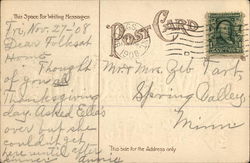 This Space For Writing Messages
POST CARD
Fri, Nov 27-'08
Dear Folks at
Home
Thought
of you all
Thanksgiving
day. Asked Ella's
over but she
couldn't get
here until after
dinner
Mr & Mrs. Zeb
Spring Valley
Minn
This side for the Address only